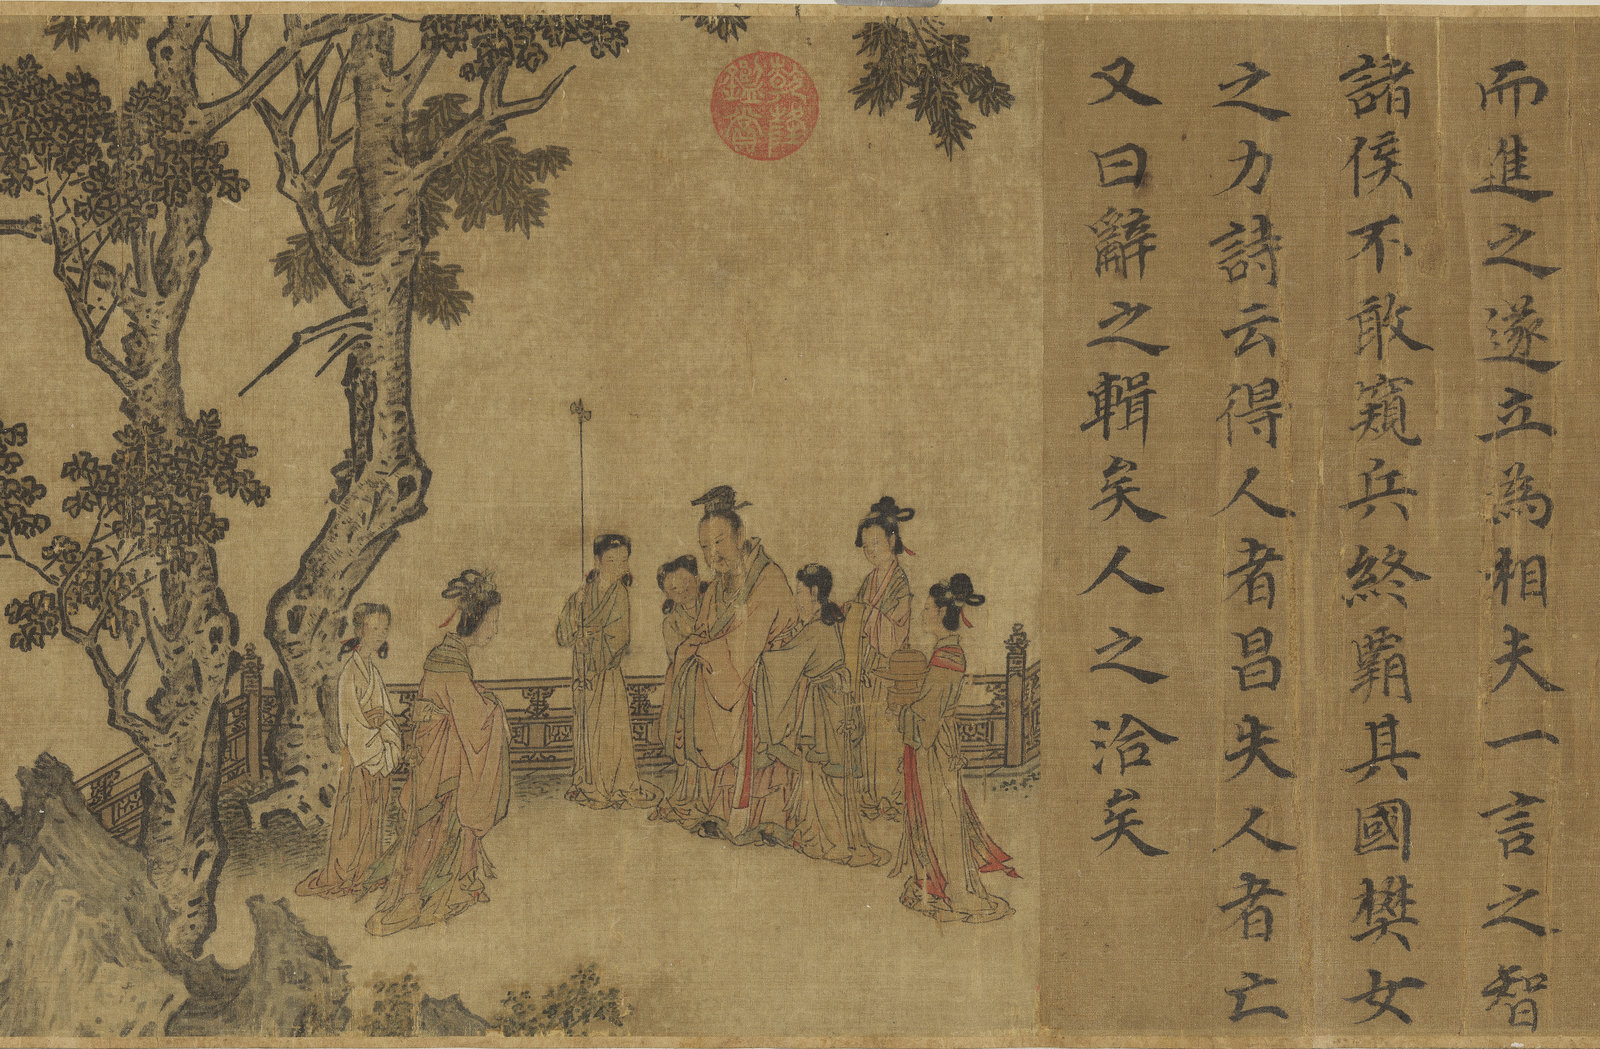 而進之遂立為相夫一言之智
諸侯不敢窺兵終霸其國樊女
之力詩云得人者昌失人者亡
又曰辭之輯矣人之洽矣